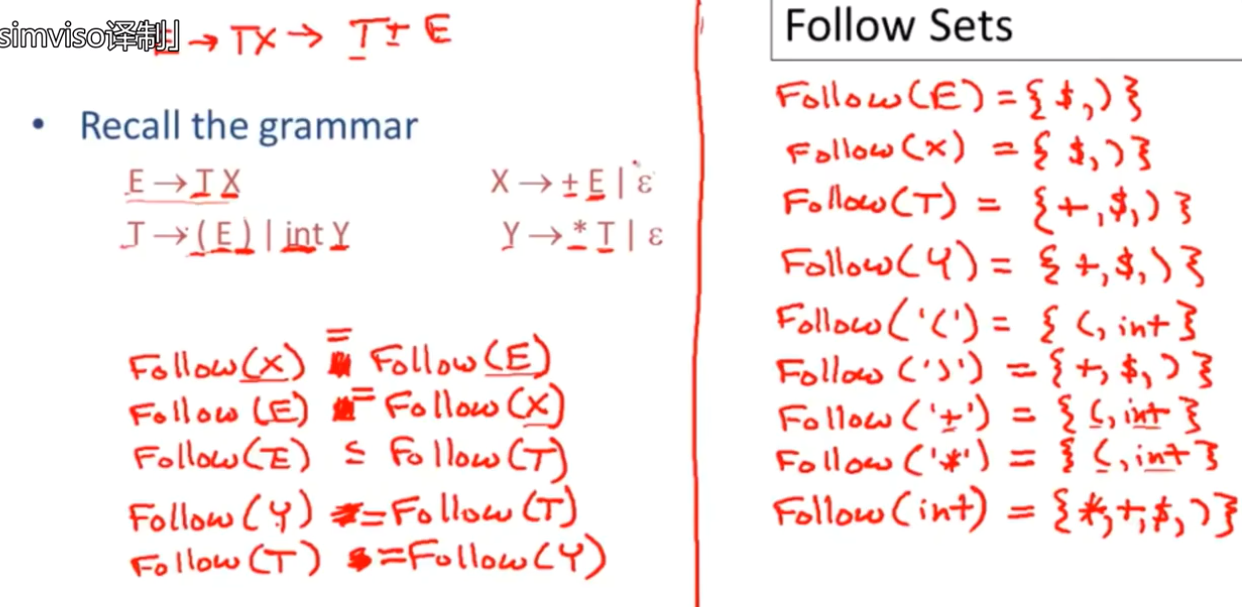 simviso译制」
E → TX → T + E
• Recall the grammar
E → T X    X → + E | ε
T → ( E ) | int Y    Y → * T | ε
Follow(X) = Follow(E)
Follow(E) = Follow(X)
Follow(E) ⊆ Follow(T)
Follow(Y) = Follow(T)
Follow(T) = Follow(Y)
Follow Sets
Follow(E) = { $, ) }
Follow(X) = { $, ) }
Follow(T) = { +, $, ) }
Follow(Y) = { +, $, ) }
Follow('(') = { (, int }
Follow(')') = { +, $, ) }
Follow('+') = { (, int }
Follow('*') = { (, int }
Follow(int) = { *, +, $, ) }